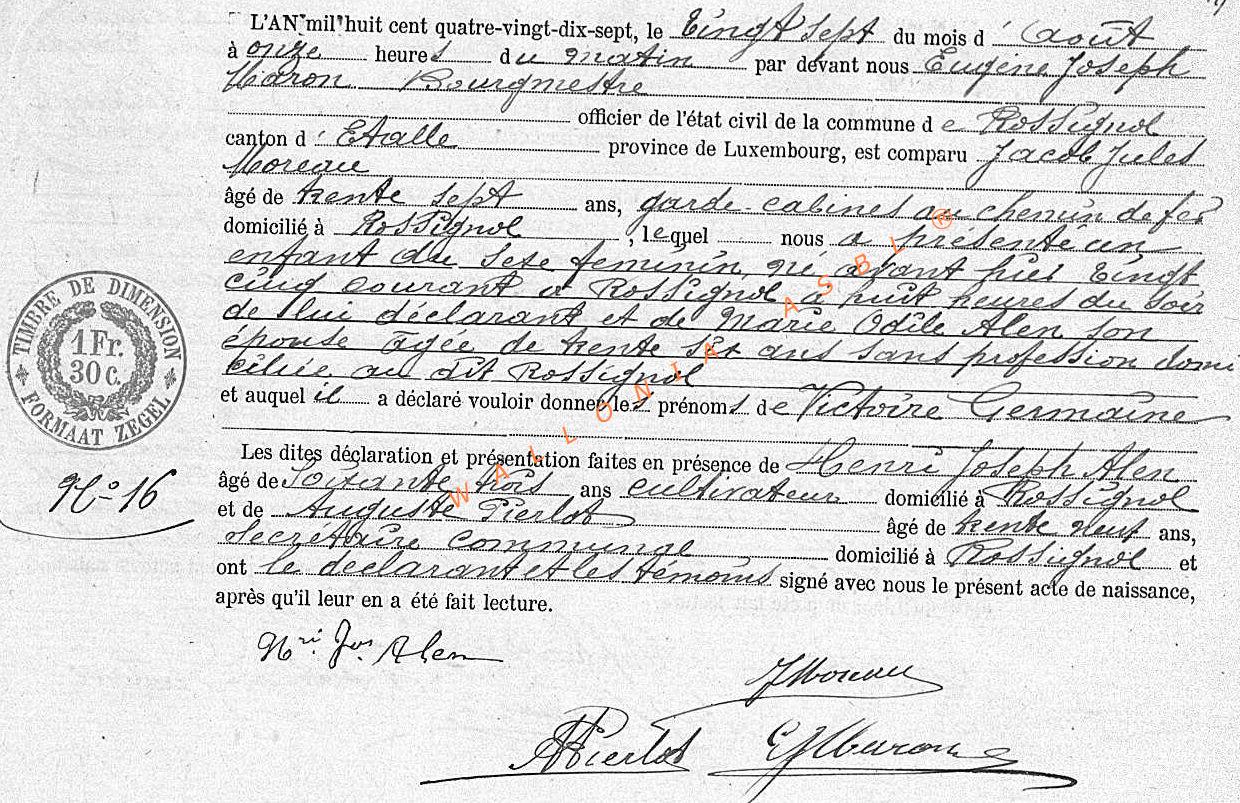 L'AN mil huit cent quatre-vingt-dix-sept, le Vingt sept du mois d' Août
à onze heures du matin par devant nous Eugène Joseph
Maron Bourgmestre
officier de l'état civil de la commune de Rossignol
canton d' Etalle province de Luxembourg, est comparu Jacob Jules
Moreau
âgé de trente sept ans, garde-cabines au chemin de fer
domicilié à Rossignol, lequel nous a présenté un
enfant du sexe feminin, né avant hier Vingt
cinq courant à Rossignol à huit heures du soir
de lui déclarant et de Marie Odile Alen son
épouse agée de trente six ans sans profession domi
ciliée au dit Rossignol
et auquel il a déclaré vouloir donner les prénoms de Victoire Germaine
Les dites déclaration et présentation faites en présence de Henri Joseph Alen
âgé de Soixante trois ans cultivateur domicilié à Rossignol
et de Auguste Pierlot âgé de trente neuf ans,
secrétaire communal domicilié à Rossignol et
ont le déclarant et les témoins signé avec nous le présent acte de naissance,
après qu'il leur en a été fait lecture.
TIMBRE DE DIMENSION
1 Fr.
30 C.
FORMAAT ZEGEL
N° 16
Hri Jos Alen
JMoreau
APierlot EJMaron
WALLONIA ASBL ®